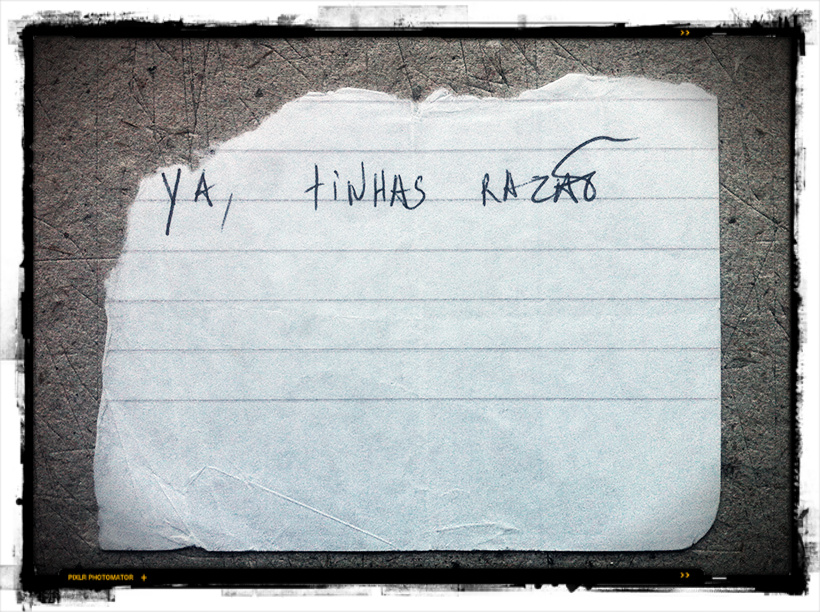 YA, tiNHAS RAZÃO
PIXLR PHOTOMATOR +